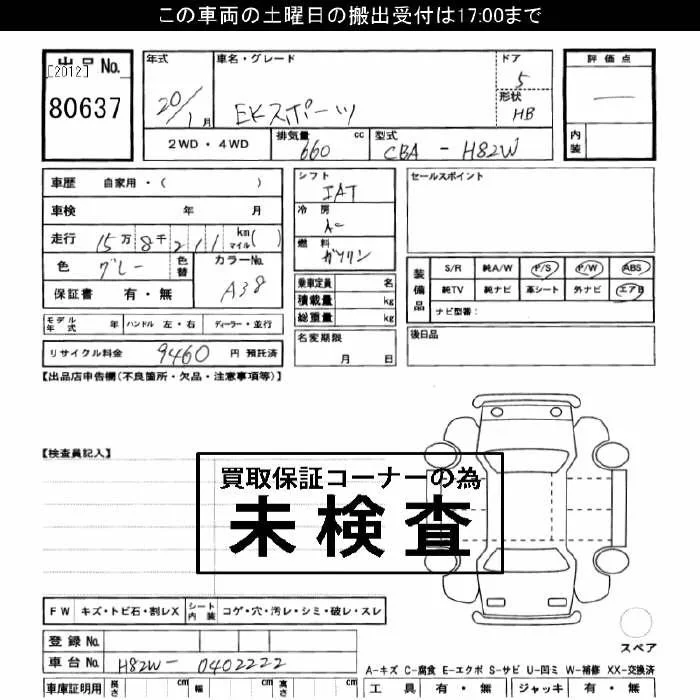 この車両の土曜日の搬出受付は17:00まで
出品No.
[2012]
80637
年式
20/1月
車名・グレード
EKスポーツ
ドア
5
形状
HB
評価点
—
内装
2WD・4WD
排気量
660 cc
型式
CBA - H82W
車歴 自家用・( )
車検 年 月
走行 15万8千211 kmマイル( )
色 グレー 色替
カラーNo.
A38
保証書 有・無
シフト
IAT
冷房
燃料
ガソリン
乗車定員 名
積載量 kg
総重量 kg
セールスポイント
装備品
S/R 純A/W P/S P/W ABS
純TV 純ナビ 革シート 外ナビ エアB
ナビ型番:
モデル年式 年 ハンドル 左・右 ディーラー・並行
名変期限
月 日
後日品
リサイクル料金 9460 円 預託済
【出品店申告欄(不良箇所・欠品・注意事項等)】
【検査員記入】
買取保証コーナーの為
未検査
FW キズ・トビ石・割レX シート内装 コゲ・穴・汚レ・シミ・破レ・スレ
登録No.
車台No. H82W- 0402222
スペア
A-キズ C-腐食 E-エクボ S-サビ U-凹ミ W-補修 XX-交換済
車庫証明用 長さ cm 幅 cm 高さ cm
工具 有・無 ジャッキ 有・無